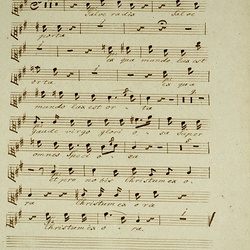 Salve radix Salve
porta
Ex qua mundo lux est
orta Ex qua
mundo lux est orta
gaude virgo gloriosa super
omnes speciosa
et pro nobis christum exo
ra christum exora
christum exora.